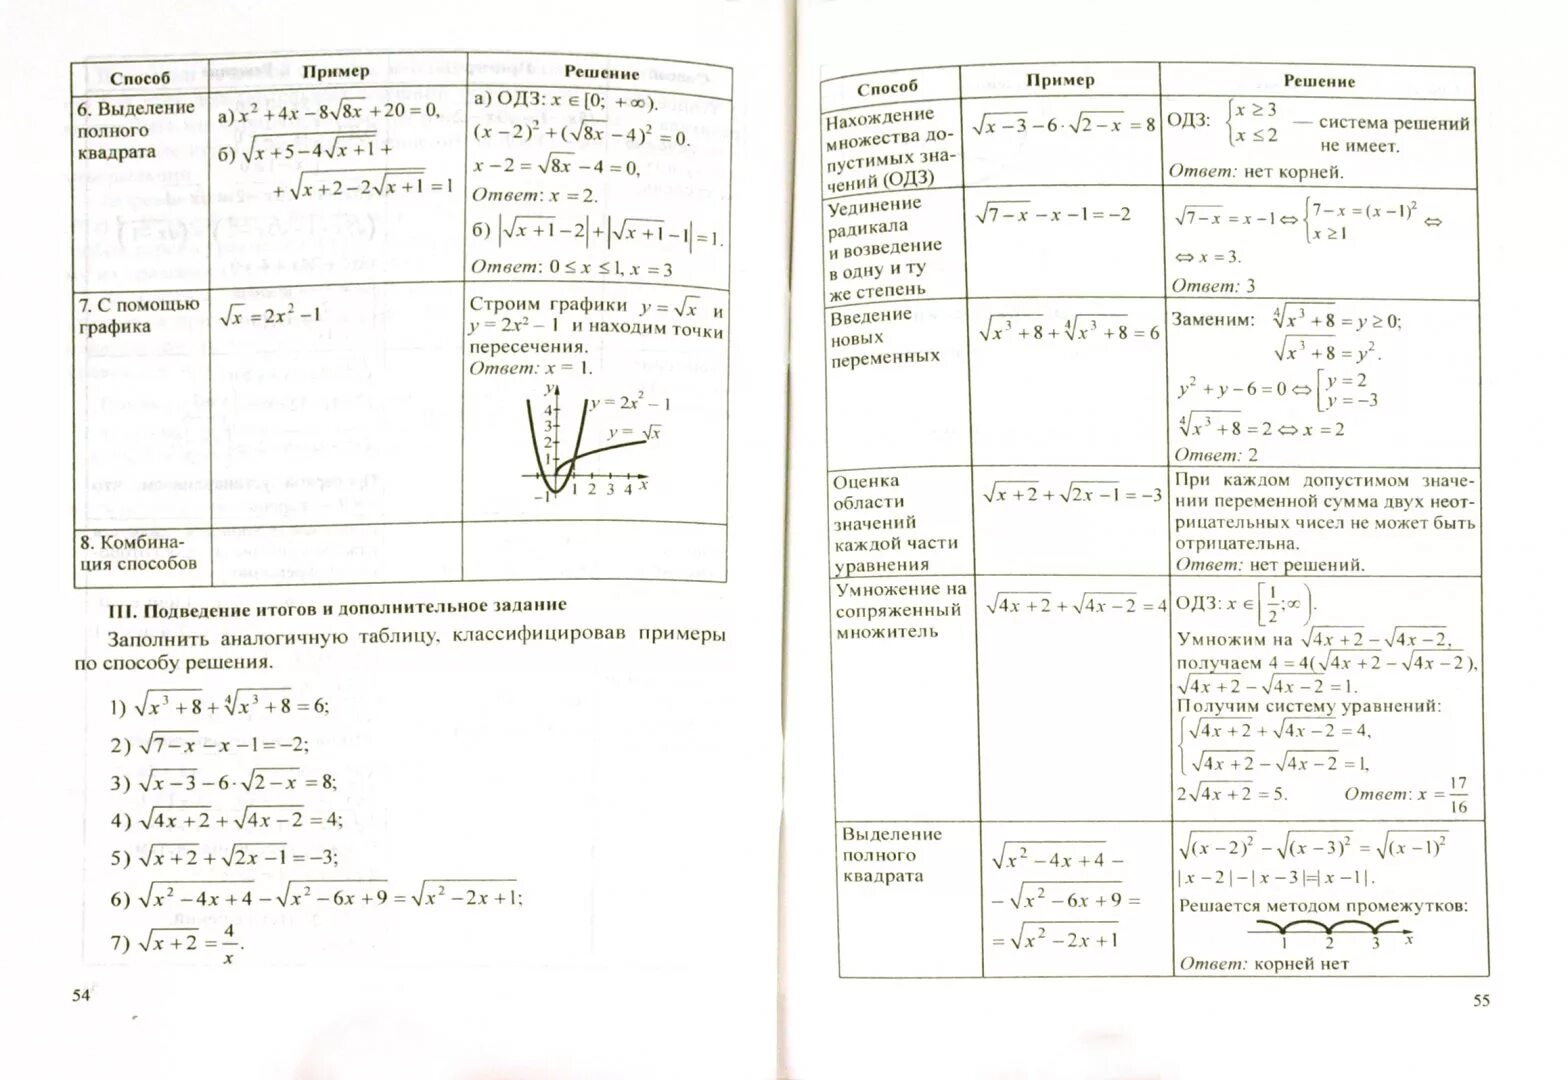 Способ Пример Решение
6. Выделение полного квадрата
а) x² + 4x − 8√(8x) + 20 = 0,
б) √(x + 5 − 4√(x + 1)) +
+ √(x + 2 − 2√(x + 1)) = 1
а) ОДЗ: x ∈ [0; +∞).
(x − 2)² + (√(8x) − 4)² = 0.
x − 2 = √(8x) − 4 = 0,
Ответ: x = 2.
б) |√(x + 1) − 2| + |√(x + 1) − 1| = 1.
Ответ: 0 ≤ x ≤ 1, x = 3
7. С помощью
графика
√x = 2x² − 1
Строим графики y = √x и
y = 2x² − 1 и находим точки
пересечения.
Ответ: x = 1.
y
y = 2x² − 1
4
3
2
1
y = √x
−1
1 2 3 4 x
8. Комбина-
ция способов
III. Подведение итогов и дополнительное задание
Заполнить аналогичную таблицу, классифицировав примеры
по способу решения.
1) √(x³ + 8) + ⁴√(x³ + 8) = 6;
2) √(7 − x) − x − 1 = −2;
3) √(x − 3) − 6 · √(2 − x) = 8;
4) √(4x + 2) + √(4x − 2) = 4;
5) √(x + 2) + √(2x − 1) = −3;
6) √(x² − 4x + 4) − √(x² − 6x + 9) = √(x² − 2x + 1);
7) √(x + 2) = 4/x.
54
Способ Пример Решение
Нахождение
множества до-
пустимых зна-
чений (ОДЗ)
√(x − 3) − 6 · √(2 − x) = 8
ОДЗ: { x ≥ 3
x ≤ 2 — система решений
не имеет.
Ответ: нет корней.
Уединение
радикала
и возведение
в одну и ту
же степень
√(7 − x) − x − 1 = −2
√(7 − x) = x − 1 ⇔ { 7 − x = (x − 1)²
x ≥ 1 ⇔
⇔ x = 3.
Ответ: 3
Введение
новых
переменных
√(x³ + 8) + ⁴√(x³ + 8) = 6
Заменим: ⁴√(x³ + 8) = y ≥ 0;
√(x³ + 8) = y².
y² + y − 6 = 0 ⇔ [ y = 2
y = −3
⁴√(x³ + 8) = 2 ⇔ x = 2
Ответ: 2
Оценка
области
значений
каждой части
уравнения
√(x + 2) + √(2x − 1) = −3
При каждом допустимом значе-
нии переменной сумма двух неот-
рицательных чисел не может быть
отрицательна.
Ответ: нет решений.
Умножение на
сопряженный
множитель
√(4x + 2) + √(4x − 2) = 4
ОДЗ: x ∈ [1/2; ∞).
Умножим на √(4x + 2) − √(4x − 2),
получаем 4 = 4(√(4x + 2) − √(4x − 2)),
√(4x + 2) − √(4x − 2) = 1.
Получим систему уравнений:
{ √(4x + 2) + √(4x − 2) = 4,
√(4x + 2) − √(4x − 2) = 1,
2√(4x + 2) = 5. Ответ: x = 17/16
Выделение
полного
квадрата
√(x² − 4x + 4) −
− √(x² − 6x + 9) =
= √(x² − 2x + 1)
√(x − 2)² − √(x − 3)² = √(x − 1)²
|x − 2| − |x − 3| = |x − 1|.
Решается методом промежутков:
1 2 3 x
Ответ: корней нет
55